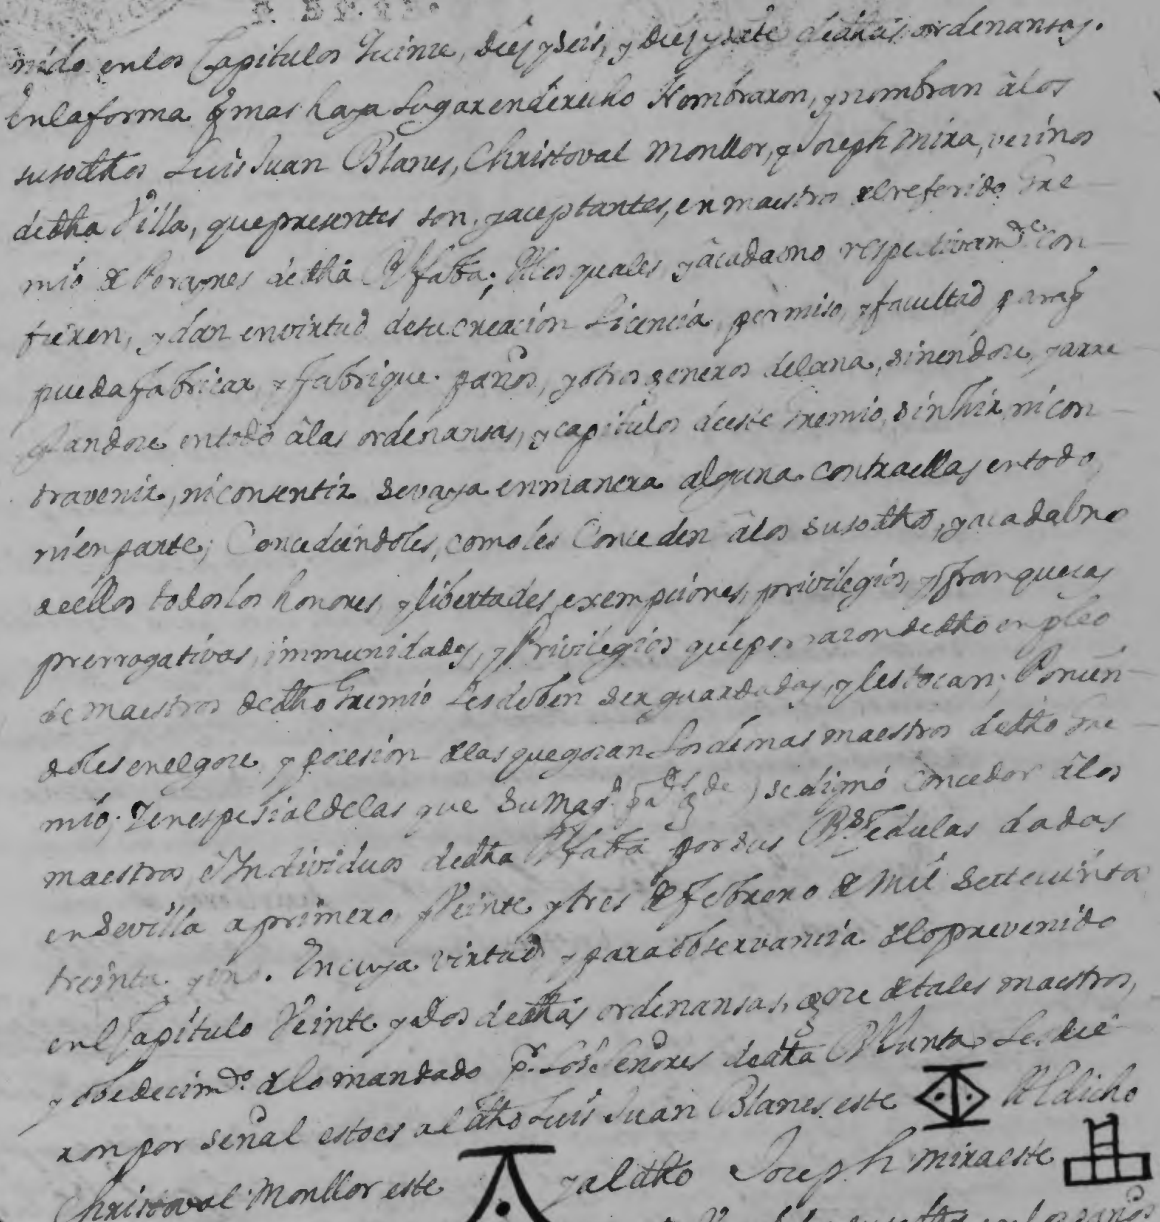 nido en los Capitulos Quinse, diez y seis, y diez y siete de dhas ordenansas.
En la forma q mas haya lugar en derecho Nombraron, y nombran à los
susodhos Luis Juan Blanes, Christoval Monllor, y Joseph Mira, vecinos
de dha Villa, que presentes son, y aceptantes, en maestros del referido Gre-
mio de Perayres de dha Rl fabca; A los quales, y à cada uno respectivamte con-
fieren, y dan en virtud de su creacion Licencia, permiso, y facultad para q
pueda fabricar, y fabrique paños, y otros generos de lana, siñendose, y arre-
glandose en todo à las ordenansas, y capitulos de este Gremio, sin hir, ni con-
travenir, ni consentir se vaya en manera alguna contra ellas en todo,
ni en parte; Concediendoles, como les Conceden à los susodhos, y a cada uno
de ellos todos los honores, y libertades, exempciones, privilegios, y franquezas
prerrogativas, immunidades, y Privilegios que por razon de dho empleo
de Maestros de dho Gremio les deben ser guardadas, y les tocan; Ponien-
doles en el goze, y posesion de las que gozan los demas maestros de dho Gre-
mio; Y en espesial de las que su Magd ) se dignó conceder à los
maestros, è Individuos de dha Rl fabca por sus Rs Cedulas dadas
en Sevilla a primero, y Veinte y tres de Febrero de Mil settecientos
treinta y uno. En cuya virtud, y para observancia de lo prevenido
en el Capitulo Veinte y dos de dhas ordenansas, goze de tales maestros,
y obedecimto de lo mandado pr los Señores de dha Rl Junta les die-
ron por señal esto es al dho Luis Juan Blanes este Al dicho
Christoval Monllor este y al dho Joseph Mira este